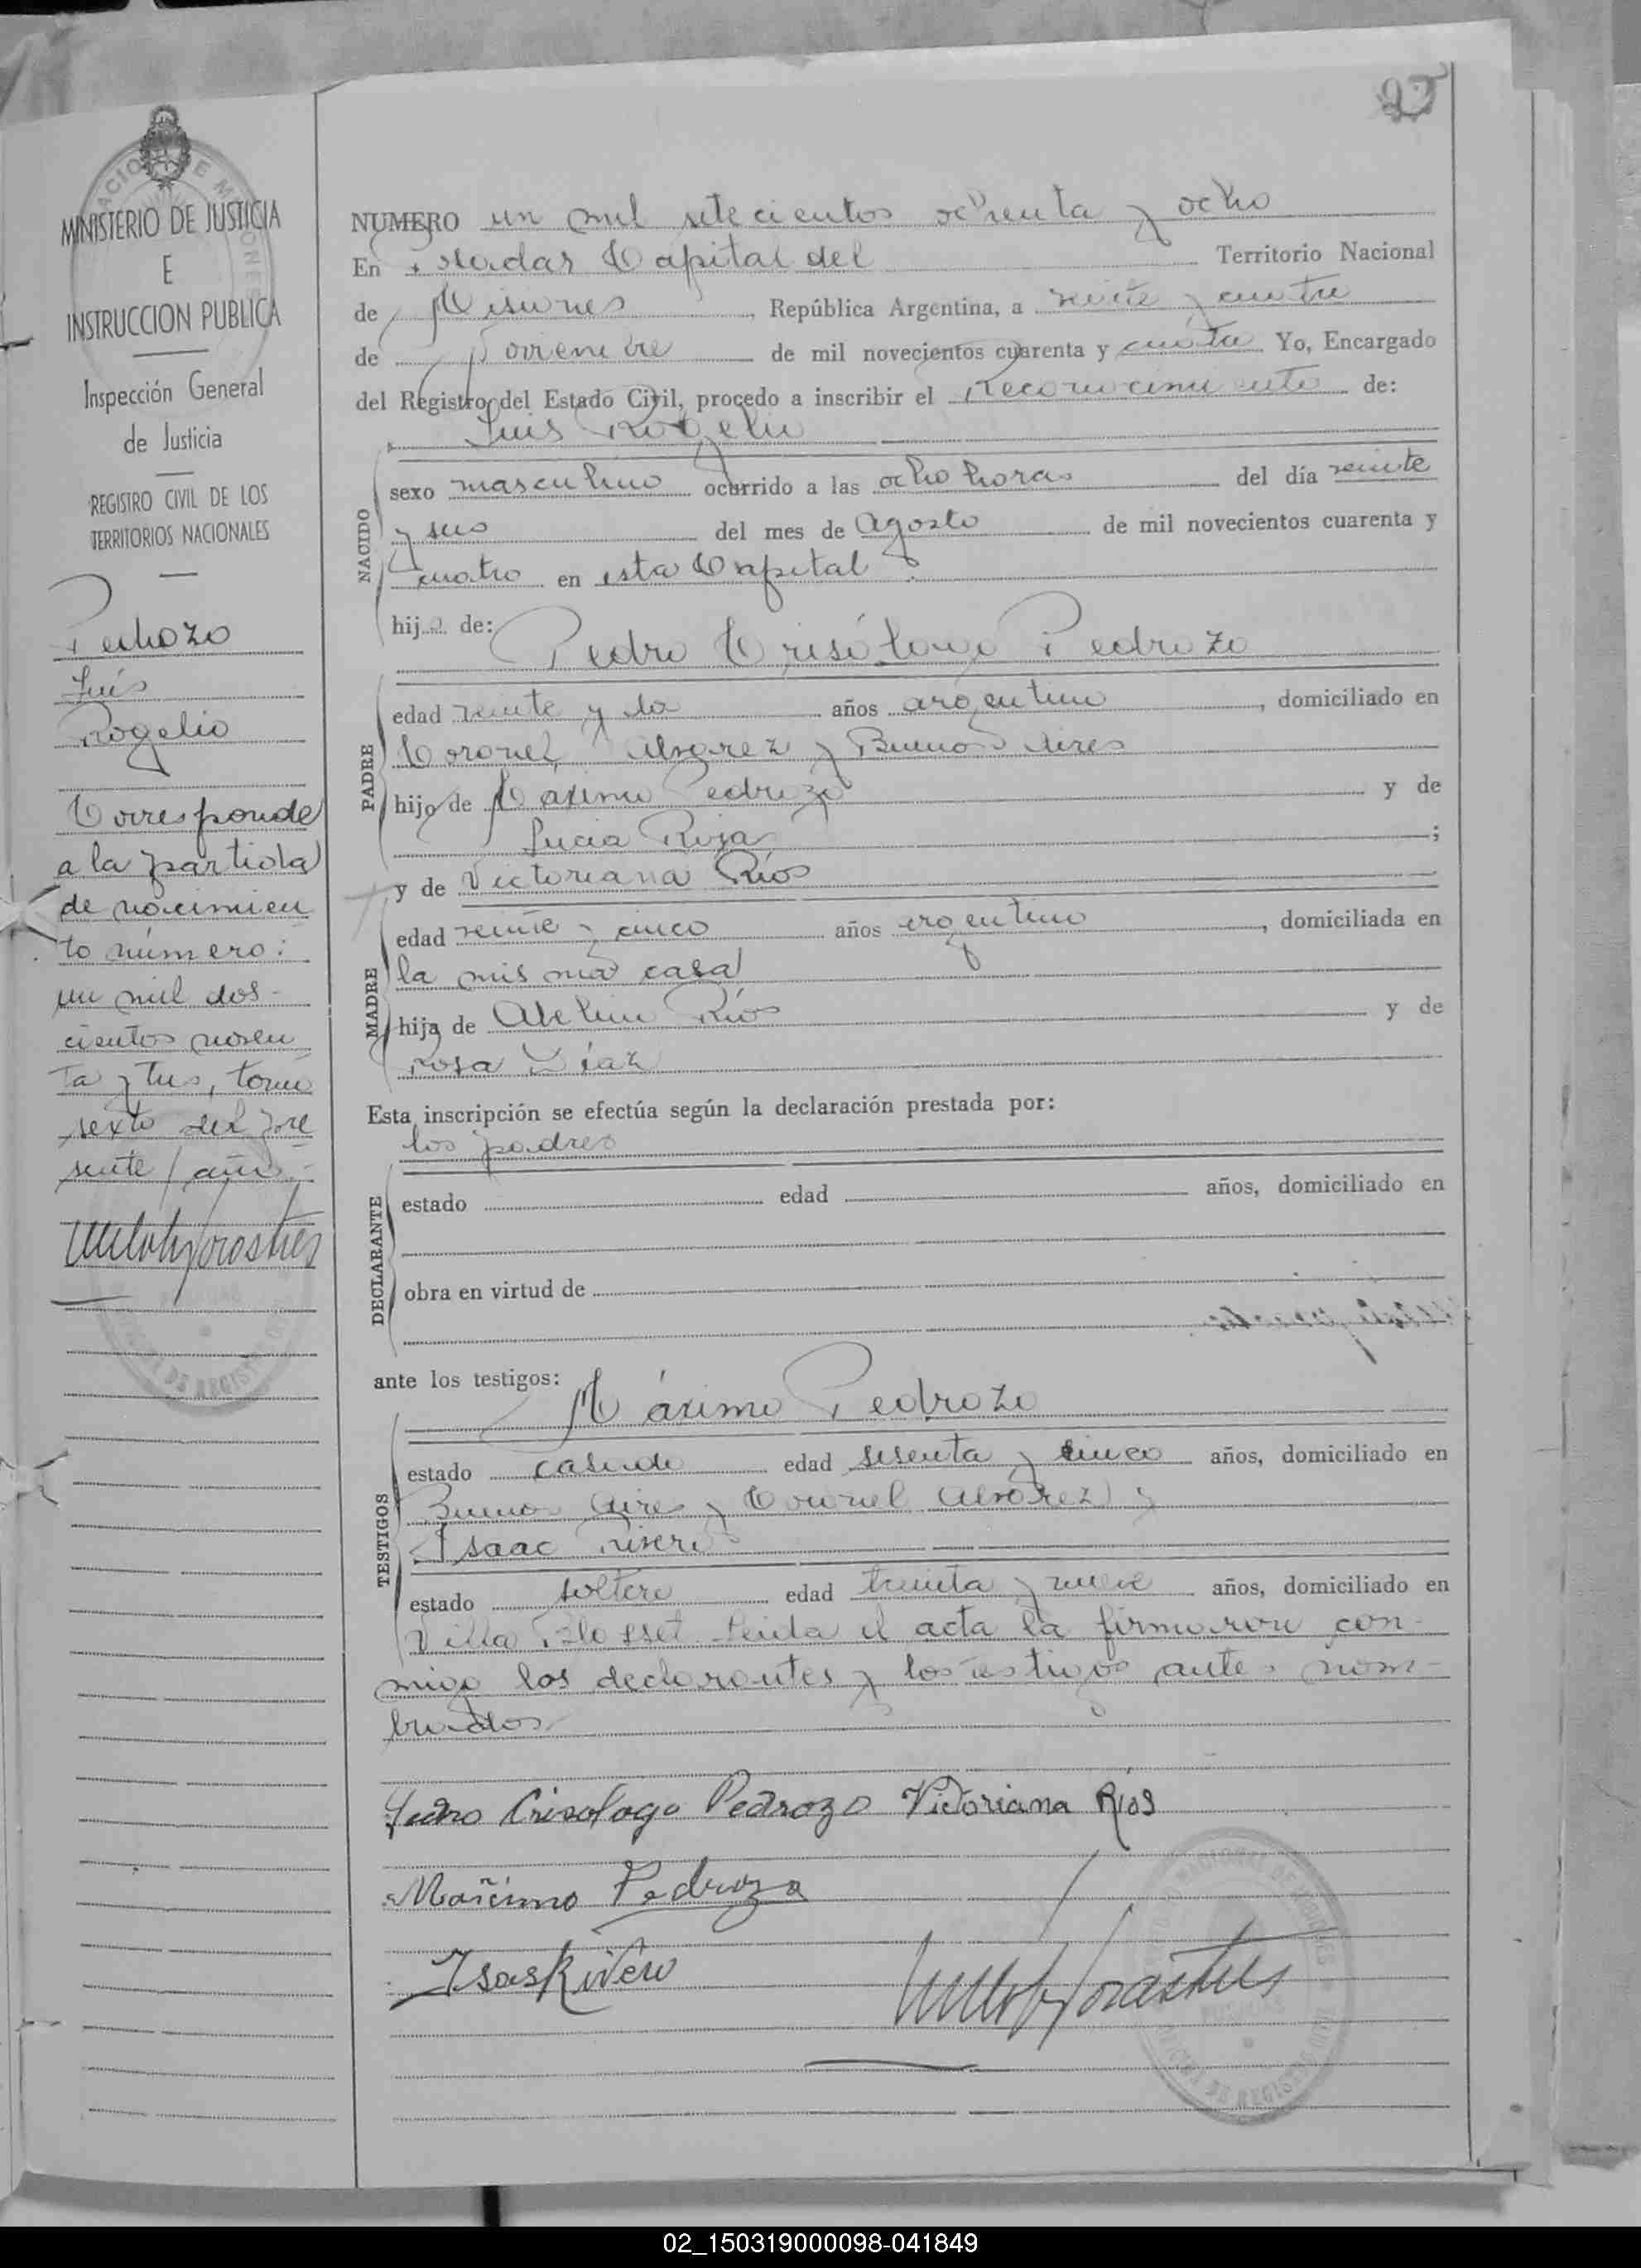 27
MINISTERIO DE JUSTICIA
E
INSTRUCCION PUBLICA
Inspección General
de Justicia
REGISTRO CIVIL DE LOS
TERRITORIOS NACIONALES
Pedrozo
Luis
Rogelio
Corresponde
a la partida
de nacimien
to número:
un mil dos-
cientos noven
ta y tres, tomo
sexto del pre
sente año.-
NUMERO un mil setecientos ochenta y ocho
En Posadas Capital del Territorio Nacional
de Misiones, República Argentina, a veinte y cuatro
de Noviembre de mil novecientos cuarenta y cuatro Yo, Encargado
del Registro del Estado Civil, procedo a inscribir el Reconocimiento de:
Luis Rogelio
NACIDO
sexo masculino ocurrido a las ocho horas del día veinte
y seis del mes de Agosto de mil novecientos cuarenta y
cuatro en esta Capital
hijo de:
Pedro Crisólogo Pedrozo
PADRE
edad veinte y dos años argentino, domiciliado en
Coronel Alvarez y Buenos Aires
hijo de Máximo Pedrozo y de
Lucia Rojas;
y de Victoriana Ríos
MADRE
edad veinte y cinco años argentino, domiciliada en
la misma casa
hija de Abelino Ríos y de
rosa Díaz
Esta inscripción se efectúa según la declaración prestada por:
los padres
DECLARANTE
estado edad años, domiciliado en
obra en virtud de
ante los testigos:
Máximo Pedrozo
TESTIGOS
estado casado edad sesenta y cinco años, domiciliado en
Buenos Aires y Coronel Alvarez y
Isaac Rivero
estado soltero edad treinta y nueve años, domiciliado en
Villa Blosset Leida el acta la firmaron con-
migo los declarantes y los testigos antes nom-
brados
Pedro Crisologo Pedrozo Victoriana Ríos
Máximo Pedrozo
Isaak Rivero
02_150319000098-041849